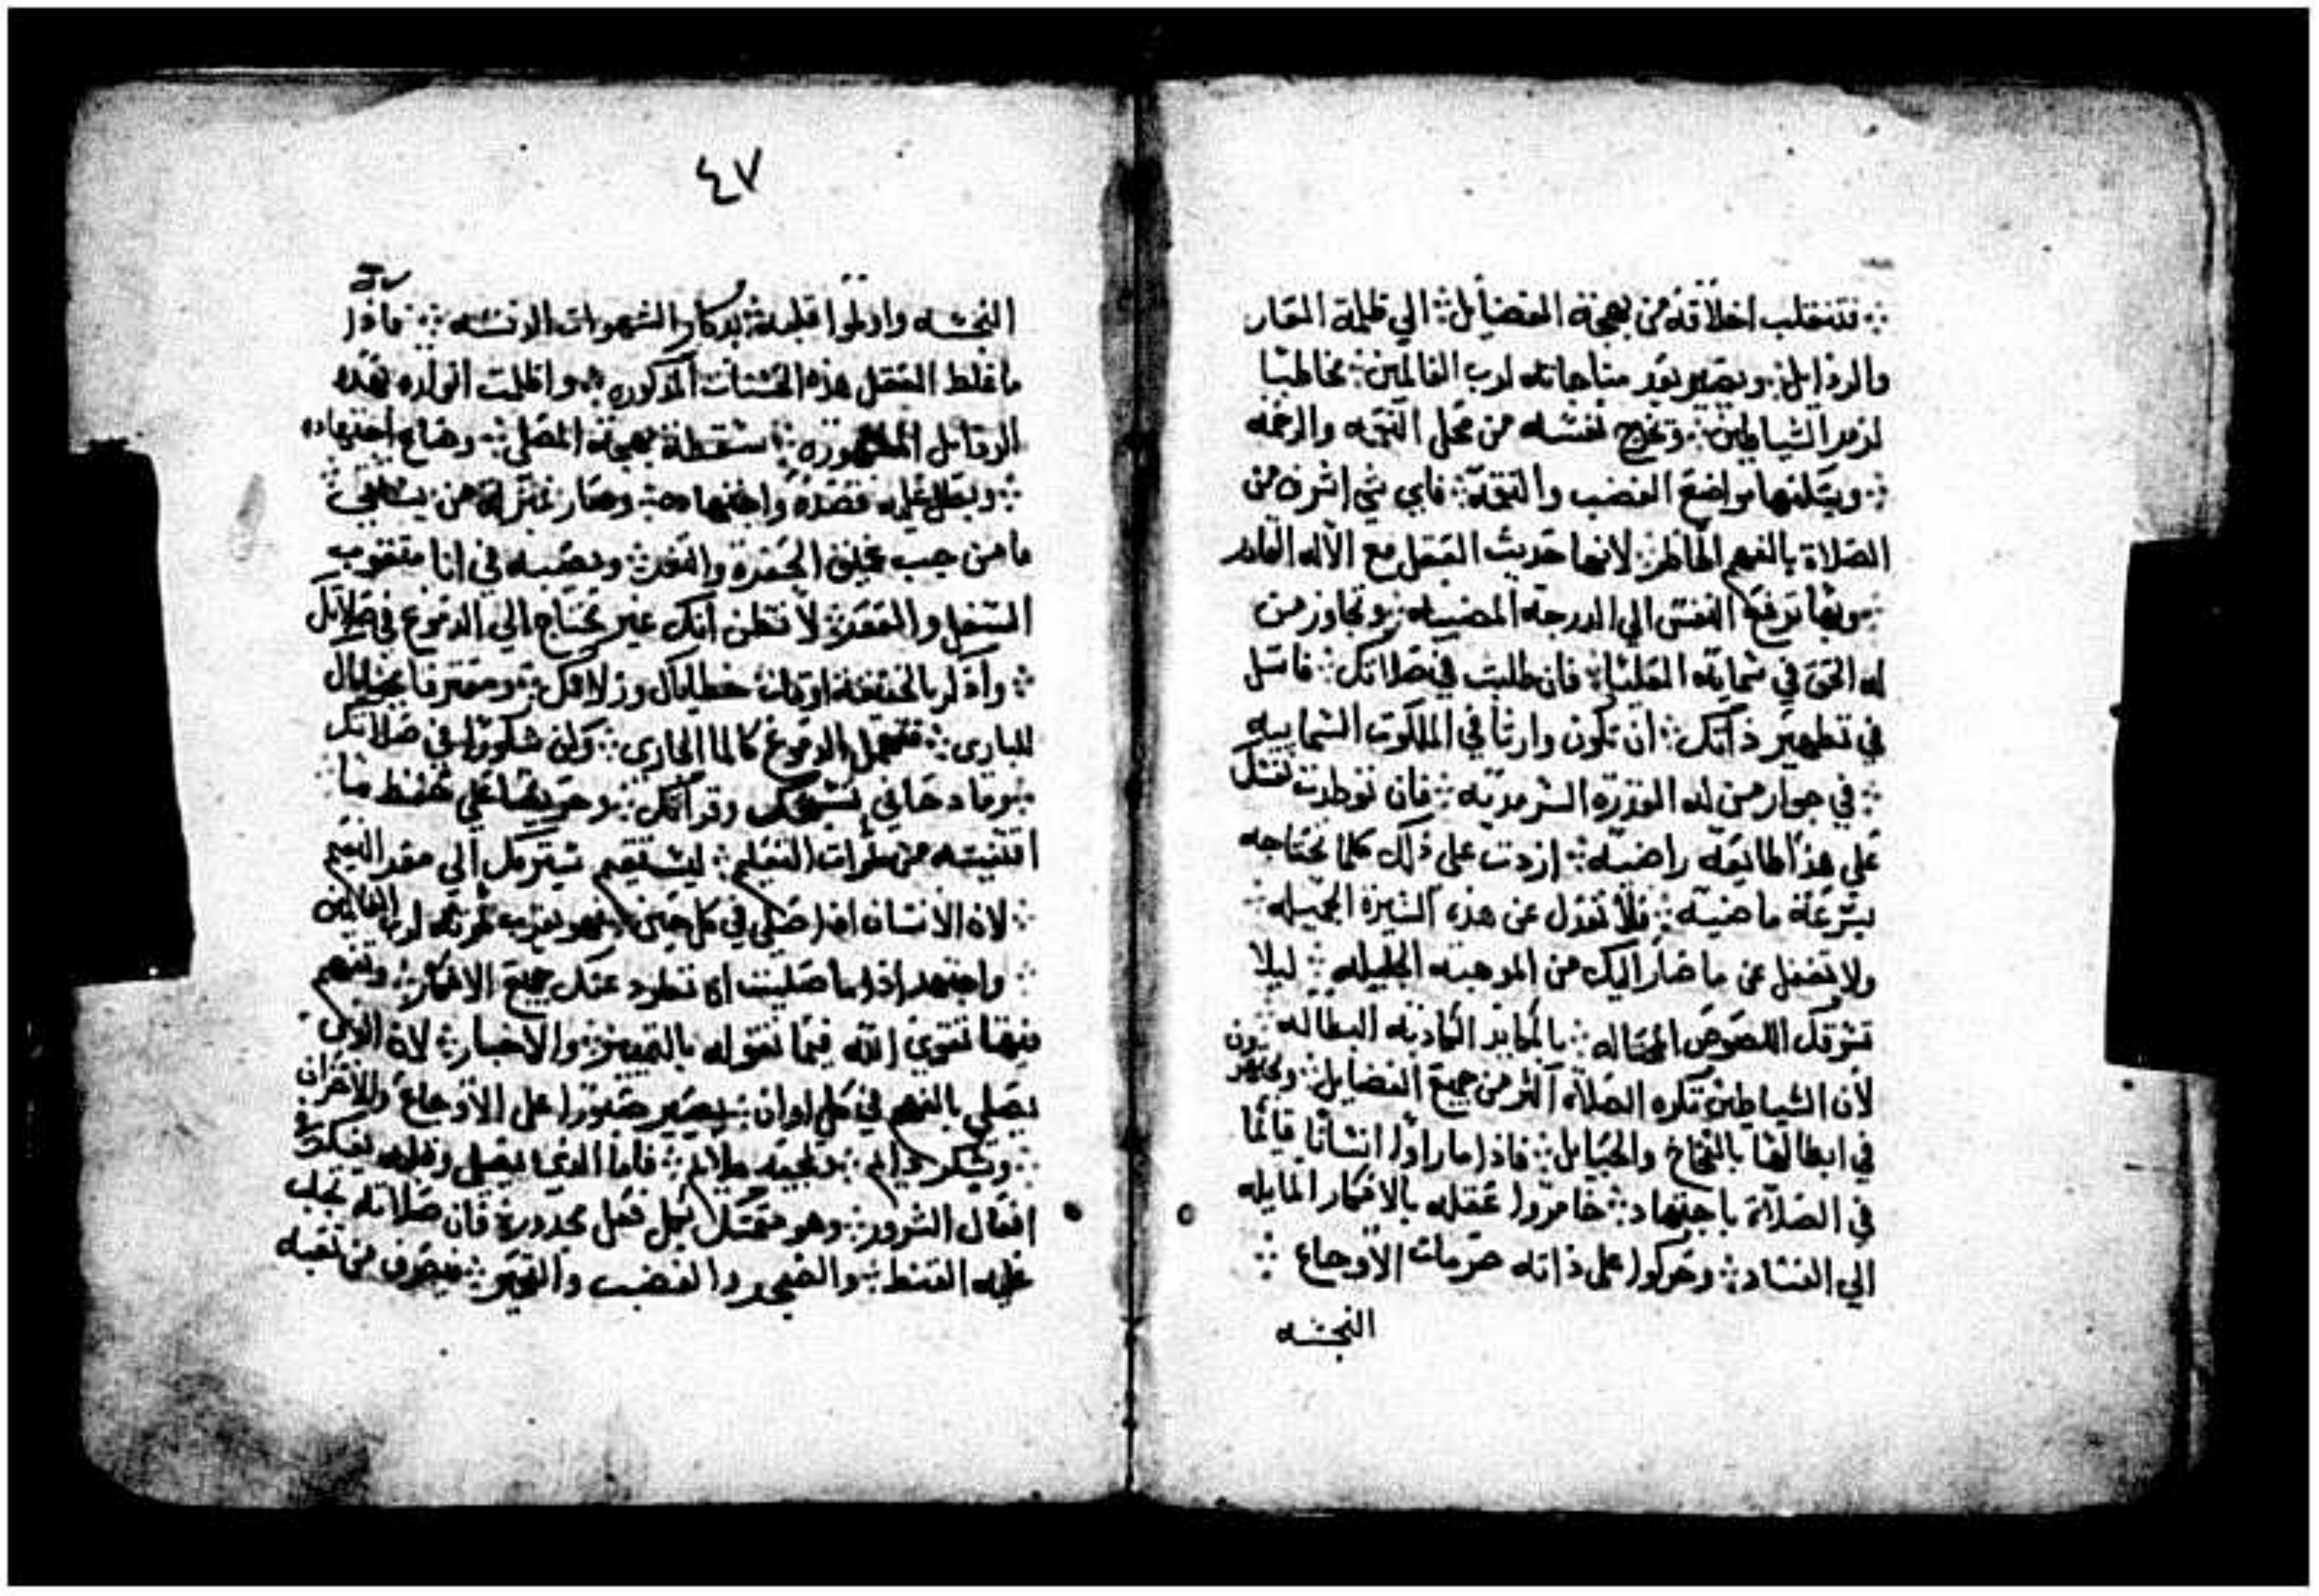 فتنقلب اخلاقه من بهجة الفضايل ∴ الي ظلمة العار
والرذايل ∴ ويصير بعد مناجاته لرب العالمين ∴ مخاطبا
لزمر الشياطين ∴ وتخرج نفسه من محل النعمه والرحمه
∴ ويسكنها مواضع الغضب والنقمة ∴ فاي شي اشرف من
الصلاة بالفهم الطاهر ∴ لانها حديث العقل مع الاله القادر
∴ وبها ترفع النفس الي الدرجه المضييه ∴ وتجاوز من
له الحق في سمايه العليا ∴ فان طلبت في صلاتك ∴ فاسل
في تطهير ذاتك ∴ ان تكون وارثا في الملكوت السماييه
∴ في جوار من له القدرة السرمديه ∴ فان توطدت نفسك
علي هذا طايعه راضيه ∴ ازدت علي ذلك كلما تحتاجه
بسرعة ماضيه ∴ فلا تعدل عن هذه السيرة الجميله ∴
ولا تغفل عن ما صار اليك من الموهبه الجليله ∴ ليلا
تسرقك اللصوص المحتاله ∴ بالمكايد الكاذبه البطاله ∴
لان الشياطين تكره الصلاة اكثر من جميع الفضايل ∴ ويجتهدون
في ابطالها بالفخاخ والحبايل ∴ فاذا ما راوا انسانا قايما
في الصلاة باجتهاد ∴ خامروا عقله بالافكار المايله
الي الفساد ∴ وحركوا علي ذاته حرمات الاوجاع ∴
النجسه
٤٧
النجسه واذلوا قلبه بتذكار الشهوات الدنسه ∴ فاذا
ما غلط العقل هذه الحسنات المذكوره ∴ واظلمت انواره بهذه
الرذايل المشهوره ∴ سقطة بهجة المصلي ∴ وضاع اجتهاده
∴ وبطل عليه قصده واجتهاده ∴ وصار بمنزلة من يستقي ∴
ما من جب عميق الحفرة والقعر ∴ ويصبه في انا مثقوب
السفل والقعر ∴ لا تظن انك غير محتاج الي الدموع في صلاتك
∴ واذكر بالحقيقة اوقات خطاياك وزلاتك ∴ ومعترفا بخطاياك
للباري ∴ فتهمل الدموع كالما الجاري ∴ وكن شكورا في صلاتك
∴ وقادحا في تسبيحك وقراتك ∴ وحريصا علي حفظ ما
اقتنيته من ثمرات التعليم ∴ ليستقيم سيرك الي مقر النعيم
∴ لان الانسان اذا صلي في كل حين ∴ فهو يقرب ثمرته لرب العالمين
∴ واجتهد اذا ما صليت ان تطرد عنك جميع الافكار ∴ وتفهم
فيها تقوي الله فيما تقوله بالتمييز والاختبار ∴ لان الذي
يصلي بالفهم في كل اوان ∴ يصير صبورا علي الاوجاع والاحزان
∴ وشكر دايم ∴ ومحبه ملايم ∴ فاما الذي يصلي وقلبه يفكر في
افعال الشرور ∴ وهو متمسك بكل فعل محذور ∴ فان صلاته تجلب
عليه القنط ∴ والضجر والغضب والتحير ∴ فيصرف من تعبه